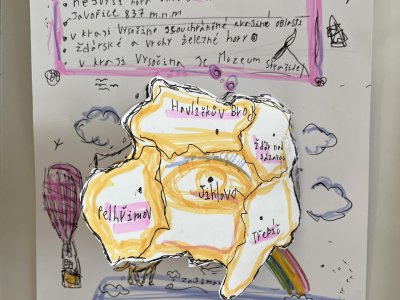 nejvyšší hora
Javořice 837 m n m
v kraji Vysočina jsou chráněné krajinné oblasti
žďárské a vrchy železné hory
v kraji Vysočina je Muzeum strašidel
Havlíčkův Brod
Žďár nad
sázavou
Jihlava
Pelhřimov
Třebíč